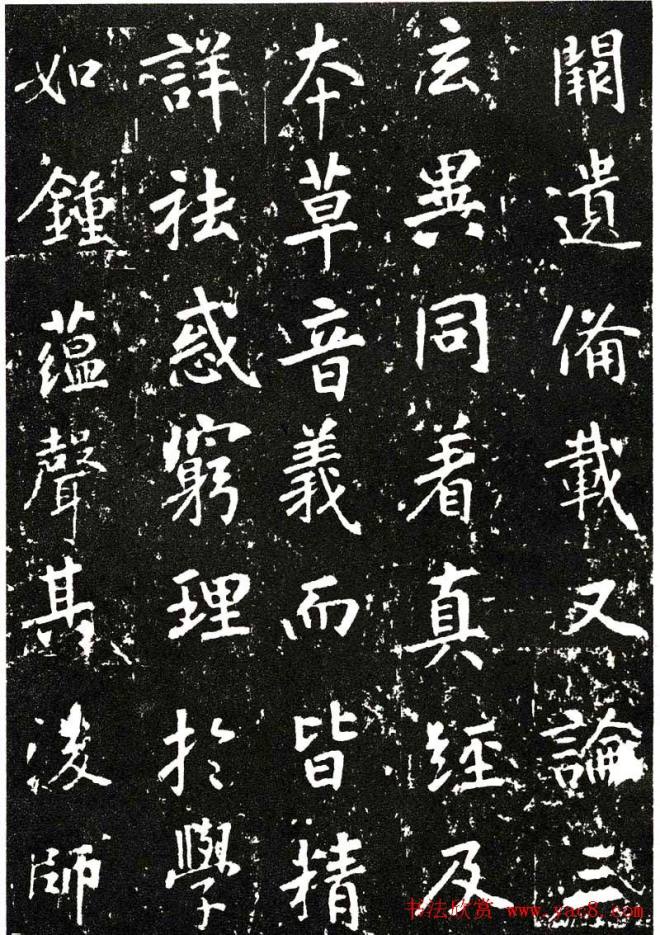 闕遺備載又論三
玄異同着真經及
本草音義而皆精
詳祛惑窮理於學
如鍾蘊聲其後師
书法欣赏 www.yac8.com